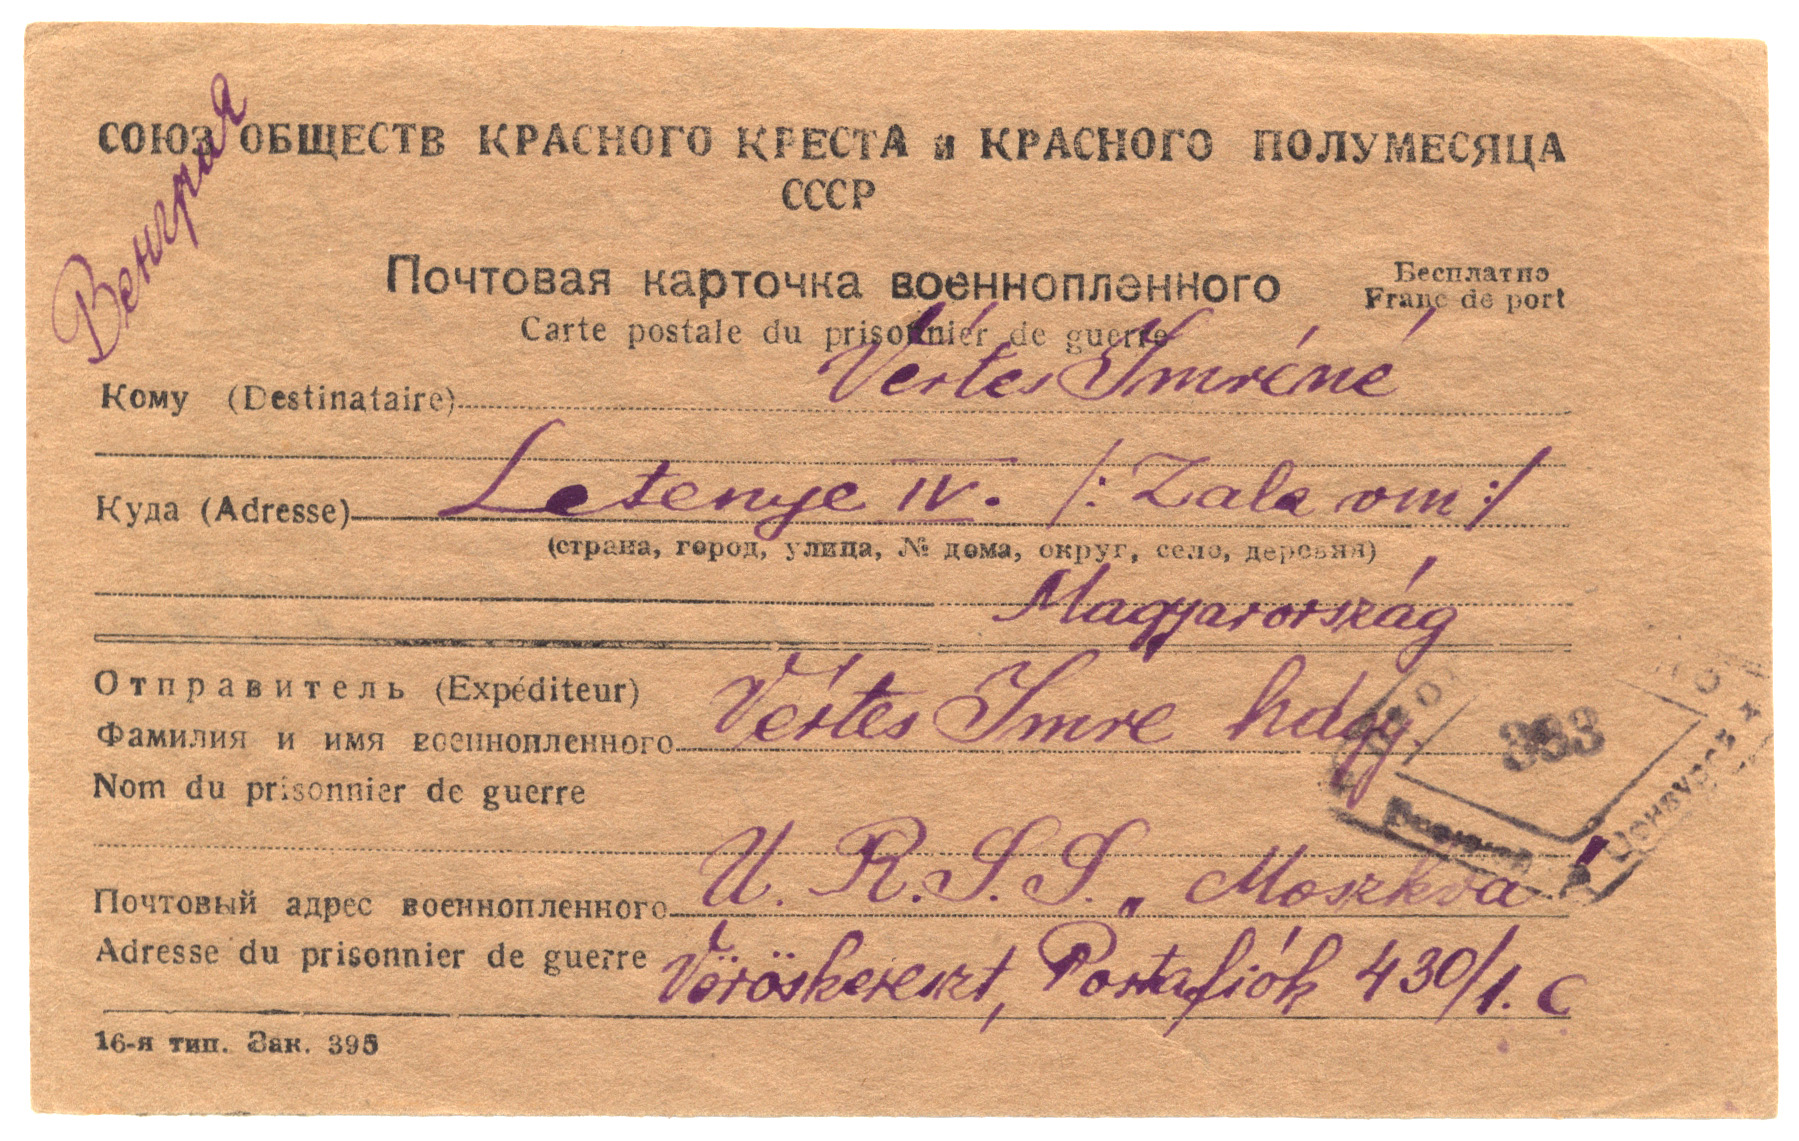 Венгрия
СОЮЗ ОБЩЕСТВ КРАСНОГО КРЕСТА и КРАСНОГО ПОЛУМЕСЯЦА
СССР
Почтовая карточка военнопленного
Бесплатно
Franc de port
Carte postale du prisonnier de guerre
Кому (Destinataire) Vértes Imréné
Куда (Adresse) Letenye IV. /: Zala vm :/
(страна, город, улица, № дома, округ, село, деревня)
Magyarország
Отправитель (Expéditeur)
Фамилия и имя военнопленного Vértes Imre hdgy.
Nom du prisonnier de guerre
383
Военной Цензурой
Почтовый адрес военнопленного U. R. S. S. „ Moszkva
Adresse du prisonnier de guerre Vöröskereszt, Postafiók 430/1. C
16-я тип. Зак. 395